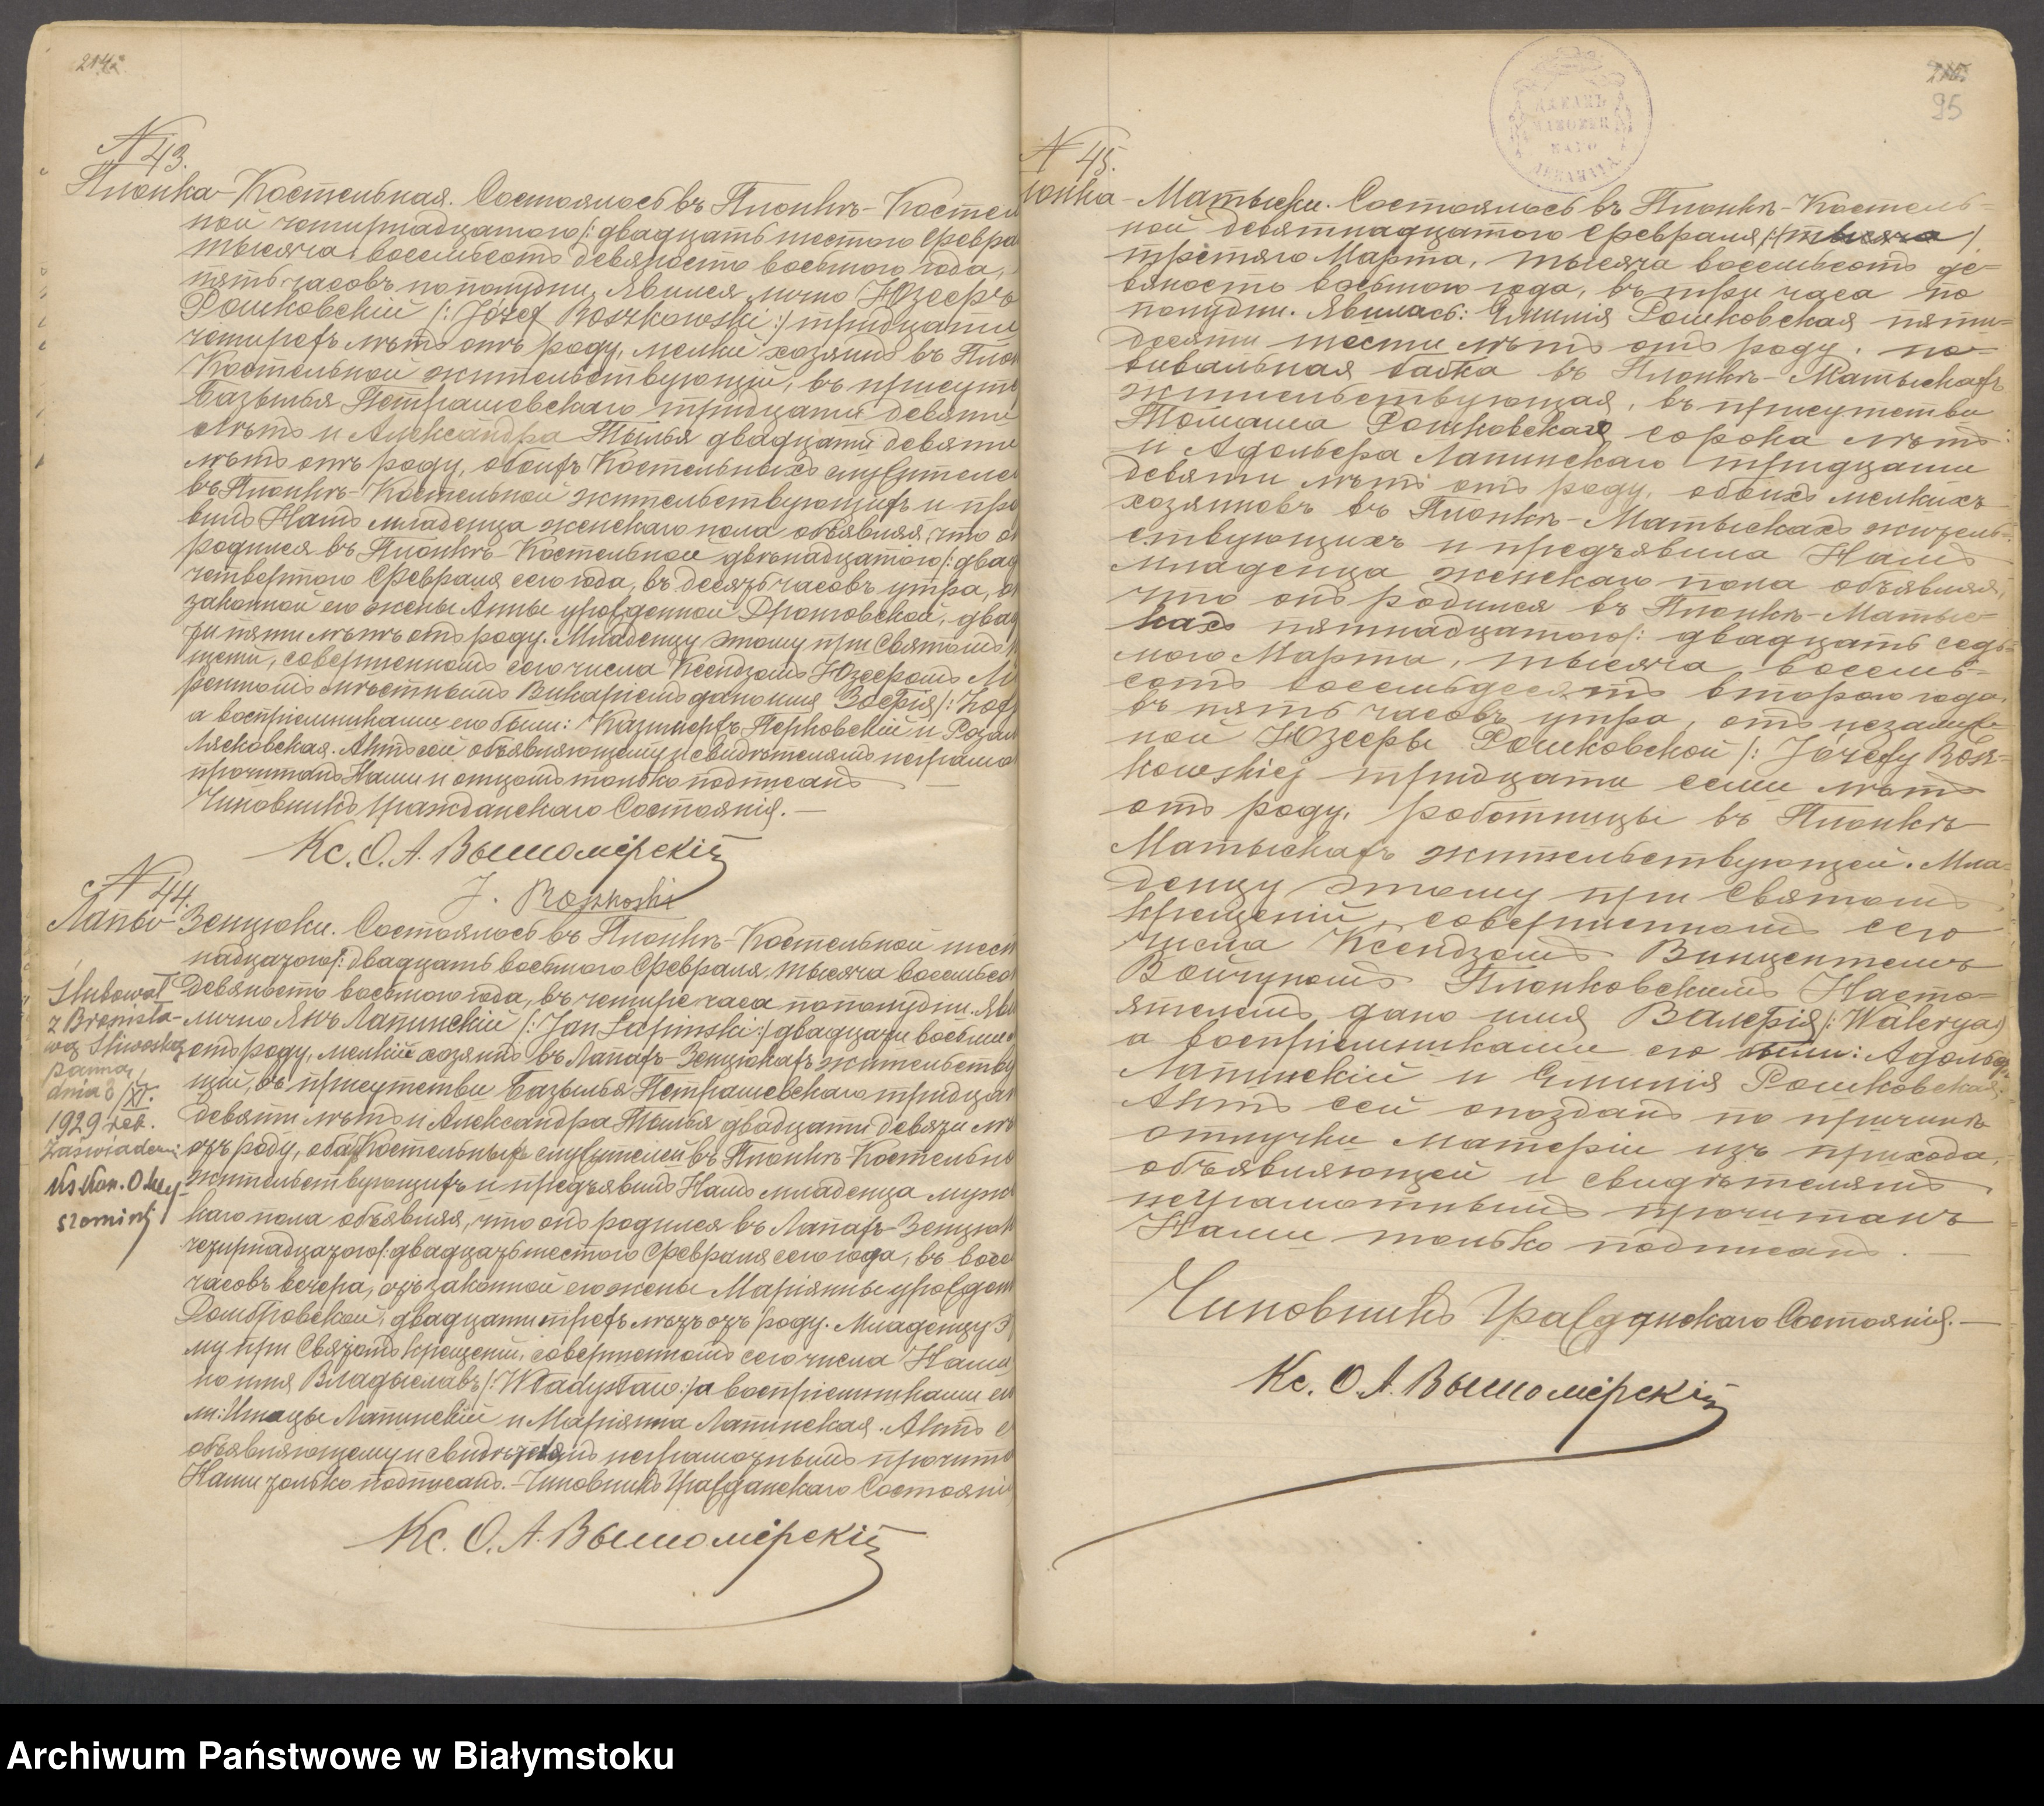 214
N 43.
Плонка-Костельная. Состоялось въ Плонкѣ-Костел
ной четырнадцатого /: двадцать шестого Февра
тысяча восемьсотъ девяносто восьмого года,
пять часовъ по полудни. Явился лично Юзефъ
Рошковскій /: Józef Roszkowski :/ тридцати
четырехъ лѣтъ отъ роду, мелкій хозяинъ въ Плон
Костельной жительствующій, въ присутс
Базылья Петрашевскаго тридцати девяти
лѣтъ и Александра Тылья двадцати девяти
лѣтъ отъ роду, обоихъ Костельныхъ служителе
въ Плонкѣ-Костельной жительствующихъ и пре
вилъ Намъ младенца женскаго пола объявляя, что он
родился въ Плонкѣ-Костельной двѣнадцатого /: двад
четвертого Февраля сего года, въ десять часовъ утра, о
законной его жены Анны урожденной Дроговской, двад
ти пяти лѣтъ отъ роду. Младенцу этому при Святомъ
щеніи, совершенномъ сего числа Ксендзомъ Юзефомъ
мѣстнымъ Викаріемъ дано имя Зофія /: Zof
а воспріемниками его были: Казимеръ Перковскій и Розал
Лясковская. Актъ сей объявляющему и свидѣтелямъ неграмо
прочитанъ Нами и отцомъ только подписанъ —
Чиновникъ Гражданскаго Состоянія. —
Кс. О. А. Вышомірскій
J. Roszkoski
N 44.
Лапы-Зенцюки. Состоялось въ Плонкѣ-Костельной шест
надцатого /: двадцать восьмого Февраля, тысяча восемьсо
девяносто восьмого года, въ четыре часа по полудни. Яви
лично Янъ Лапинскій /: Jan Łapinski :/ двадцати восьми
отъ роду, мелкій хозяинъ въ Лапахъ-Зенцюкахъ жительству
щій, въ присутствіи Базылья Петрашевскаго тридцат
девяти лѣтъ и Александра Тылья двадцати девяти лѣ
отъ роду, обоихъ Костельныхъ служителей въ Плонкѣ-Костельно
жительствующихъ и предъявилъ Намъ младенца муж
каго пола объявляя, что онъ родился въ Лапахъ-Зенцюк
четырнадцатого /: двадцать шестого Февраля сего года, въ восе
часовъ вечера, отъ законной его жены Маріянны урожден
Домбровской, двадцати трехъ лѣтъ отъ роду. Младенцу э
му при Святомъ Крещеніи, совершенномъ сего числа Нами
но имя Владыславъ /: Władysław :/ а воспріемниками ег
ли: Игнацы Лапинскій и Маріянна Лапинская. Актъ с
объявляющему и свидѣтелямъ неграмотнымъ прочита
Нами только подписанъ. — Чиновникъ Гражданскаго Состояні
Кс. О. А. Вышомірскій
Ślubował
z Bronisła-
wą Śliwoską
panną,
dnia 3/XI.
1929 
Zaświadcza:
ks. kan. O. Wy-
szomirski
95
N 45.
лонка-Матыски. Состоялось въ Плонкѣ-Костель-
ной девятнадцатого Февраля /: тысяча /
третяго Марта, тысяча восемьсотъ де-
вяносто восьмого года, въ три часа по
полудни. Явилась: Эмилія Рошковская пяти-
десяти шести лѣтъ отъ роду, по-
вивальная бабка въ Плонкѣ-Матыскахъ
жительствующая, въ присутствіи
Томаша Рошковскаго сорока лѣтъ
и Адольфа Лапинскаго тридцати
девяти лѣтъ отъ роду, обоихъ мелкихъ
хозяиновъ въ Плонкѣ-Матыскахъ жытель-
ствующихъ и предъявила Намъ
младенца женскаго пола объявляя,
что онъ родился въ Плонкѣ-Матыс-
кахъ пятнадцатого /: двадцать седь-
мого Марта, тысяча восемь-
сотъ восемьдесятъ второго года,
въ пять часовъ утра, отъ незамуж-
ной Юзефы Рошковской /: Józefy Rosz-
kowskiej тридцати семи лѣтъ
отъ роду, работницы въ Плонкѣ
Матыскахъ жительствующей. Мла-
денцу этому при Святомъ
Крещеніи, совершенномъ сего
числа Ксендзомъ Винцентемъ
Войчуномъ Плонковскимъ Насто-
ятелемъ, дано имя Валерія /: Walerya:/
а воспріемниками его были: Адольфъ
Лапинскій и Эмилія Рошковская.
Актъ сей опозданъ по причинѣ
отлучки матеріи изъ прихода,
объявляющей и свидѣтелямъ
неграмотнымъ прочитанъ
Нами только подписанъ. —
Чиновникъ Гражданскаго Состоянія. —
Кс. О. А. Вышомірскій
Archiwum Państwowe w Białymstoku